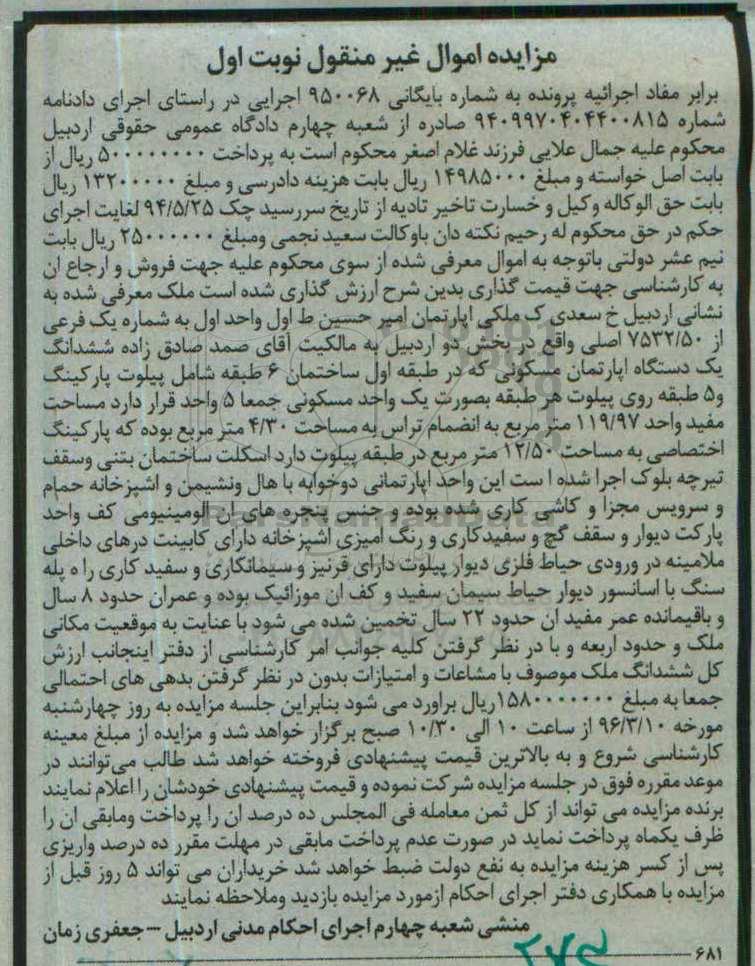 مزایده اموال غیر منقول نوبت اول
برابر مفاد اجرائیه پرونده به شماره بایگانی ۹۵۰۰۶۸ اجرایی در راستای اجرای دادنامه
شماره ۹۴۰۹۹۷۰۴۰۴۴۰۰۸۱۵ صادره از شعبه چهارم دادگاه عمومی حقوقی اردبیل
محکوم علیه جمال علایی فرزند غلام اصغر محکوم است به پرداخت ۵۰۰۰۰۰۰۰۰ ریال از
بابت اصل خواسته و مبلغ ۱۴۹۸۵۰۰۰ ریال بابت هزینه دادرسی و مبلغ ۱۳۲۰۰۰۰۰ ریال
بابت حق الوکاله وکیل و خسارت تاخیر تادیه از تاریخ سررسید چک ۹۴/۵/۲۵ لغایت اجرای
حکم در حق محکوم له رحیم نکته دان باوکالت سعید نجمی ومبلغ ۲۵۰۰۰۰۰۰ ریال بابت
نیم عشر دولتی باتوجه به اموال معرفی شده از سوی محکوم علیه جهت فروش و ارجاع ان
به کارشناسی جهت قیمت گذاری بدین شرح ارزش گذاری شده است ملک معرفی شده به
نشانی اردبیل خ سعدی ک ملکی اپارتمان امیر حسین ط اول واحد اول به شماره یک فرعی
از ۷۵۳۲/۵۰ اصلی واقع در بخش دو اردبیل به مالکیت آقای صمد صادق زاده ششدانگ
یک دستگاه اپارتمان مسکونی که در طبقه اول ساختمان ۶ طبقه شامل پیلوت پارکینگ
و۵ طبقه روی پیلوت هر طبقه بصورت یک واحد مسکونی جمعا ۵ واحد قرار دارد مساحت
مفید واحد ۱۱۹/۹۷ متر مربع به انضمام تراس به مساحت ۴/۳۰ متر مربع بوده که پارکینگ
اختصاصی به مساحت ۱۲/۵۰ متر مربع در طبقه پیلوت دارد اسکلت ساختمان بتنی وسقف
تیرچه بلوک اجرا شده ا ست این واحد اپارتمانی دوخوابه با هال ونشیمن و اشپزخانه حمام
و سرویس مجزا و کاشی کاری شده بوده و جنس پنجره های ان الومینیومی کف واحد
پارکت دیوار و سقف گچ و سفیدکاری و رنگ امیزی اشپزخانه دارای کابینت درهای داخلی
ملامینه در ورودی حیاط فلزی دیوار پیلوت دارای قرنیز و سیمانکاری و سفید کاری را ه پله
سنگ با اسانسور دیوار حیاط سیمان سفید و کف ان موزائیک بوده و عمران حدود ۸ سال
و باقیمانده عمر مفید ان حدود ۲۲ سال تخمین شده می شود با عنایت به موقعیت مکانی
ملک و حدود اربعه و با در نظر گرفتن کلیه جوانب امر کارشناسی از دفتر اینجانب ارزش
کل ششدانگ ملک موصوف با مشاعات و امتیازات بدون در نظر گرفتن بدهی های احتمالی
جمعا به مبلغ ۱۵۸۰۰۰۰۰۰۰ریال براورد می شود بنابراین جلسه مزایده به روز چهارشنبه
مورخه ۹۶/۳/۱۰ از ساعت ۱۰ الی ۱۰/۳۰ صبح برگزار خواهد شد و مزایده از مبلغ معینه
کارشناسی شروع و به بالاترین قیمت پیشنهادی فروخته خواهد شد طالب می‌توانند در
موعد مقرره فوق در جلسه مزایده شرکت نموده و قیمت پیشنهادی خودشان را اعلام نمایند
برنده مزایده می تواند از کل ثمن معامله فی المجلس ده درصد ان را پرداخت ومابقی ان را
ظرف یکماه پرداخت نماید در صورت عدم پرداخت مابقی در مهلت مقرر ده درصد واریزی
پس از کسر هزینه مزایده به نفع دولت ضبط خواهد شد خریداران می تواند ۵ روز قبل از
مزایده با همکاری دفتر اجرای احکام ازمورد مزایده بازدید وملاحظه نمایند
منشی شعبه چهارم اجرای احکام مدنی اردبیل – جعفری زمان
۶۸۱
ParsNamadData